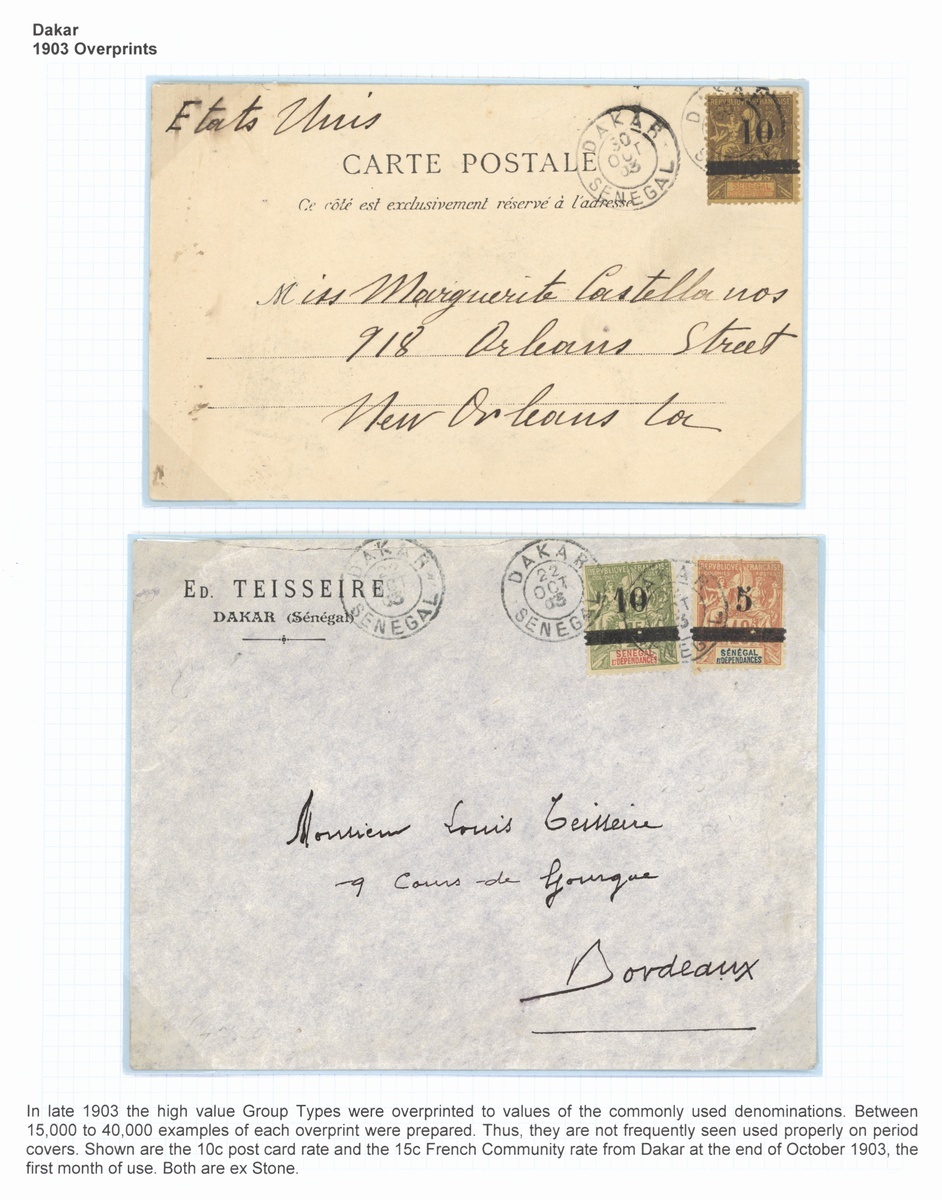 Dakar
1903 Overprints
Etats Unis
CARTE POSTALE
Ce côté est exclusivement réservé à l'adresse
DAKAR
30
OCT
03
SENEGAL
DAKAR
10
Miss Marguerite Castellanos
918 Orleans Street
New Orleans La
ED. TEISSEIRE
DAKAR (Sénégal)
DAKAR
OCT
03
SENEGAL
DAKAR
22
OCT
03
SENEGAL
REPUBLIQUE FRANÇAISE
10
SÉNÉGAL
ET DÉPENDANCES
REPUBLIQUE FRANÇAISE
5
SÉNÉGAL
ET DÉPENDANCES
Monsieur Louis Teisseire
9 Cours de Gourgue
Bordeaux
In late 1903 the high value Group Types were overprinted to values of the commonly used denominations. Between
15,000 to 40,000 examples of each overprint were prepared. Thus, they are not frequently seen used properly on period
covers. Shown are the 10c post card rate and the 15c French Community rate from Dakar at the end of October 1903, the
first month of use. Both are ex Stone.